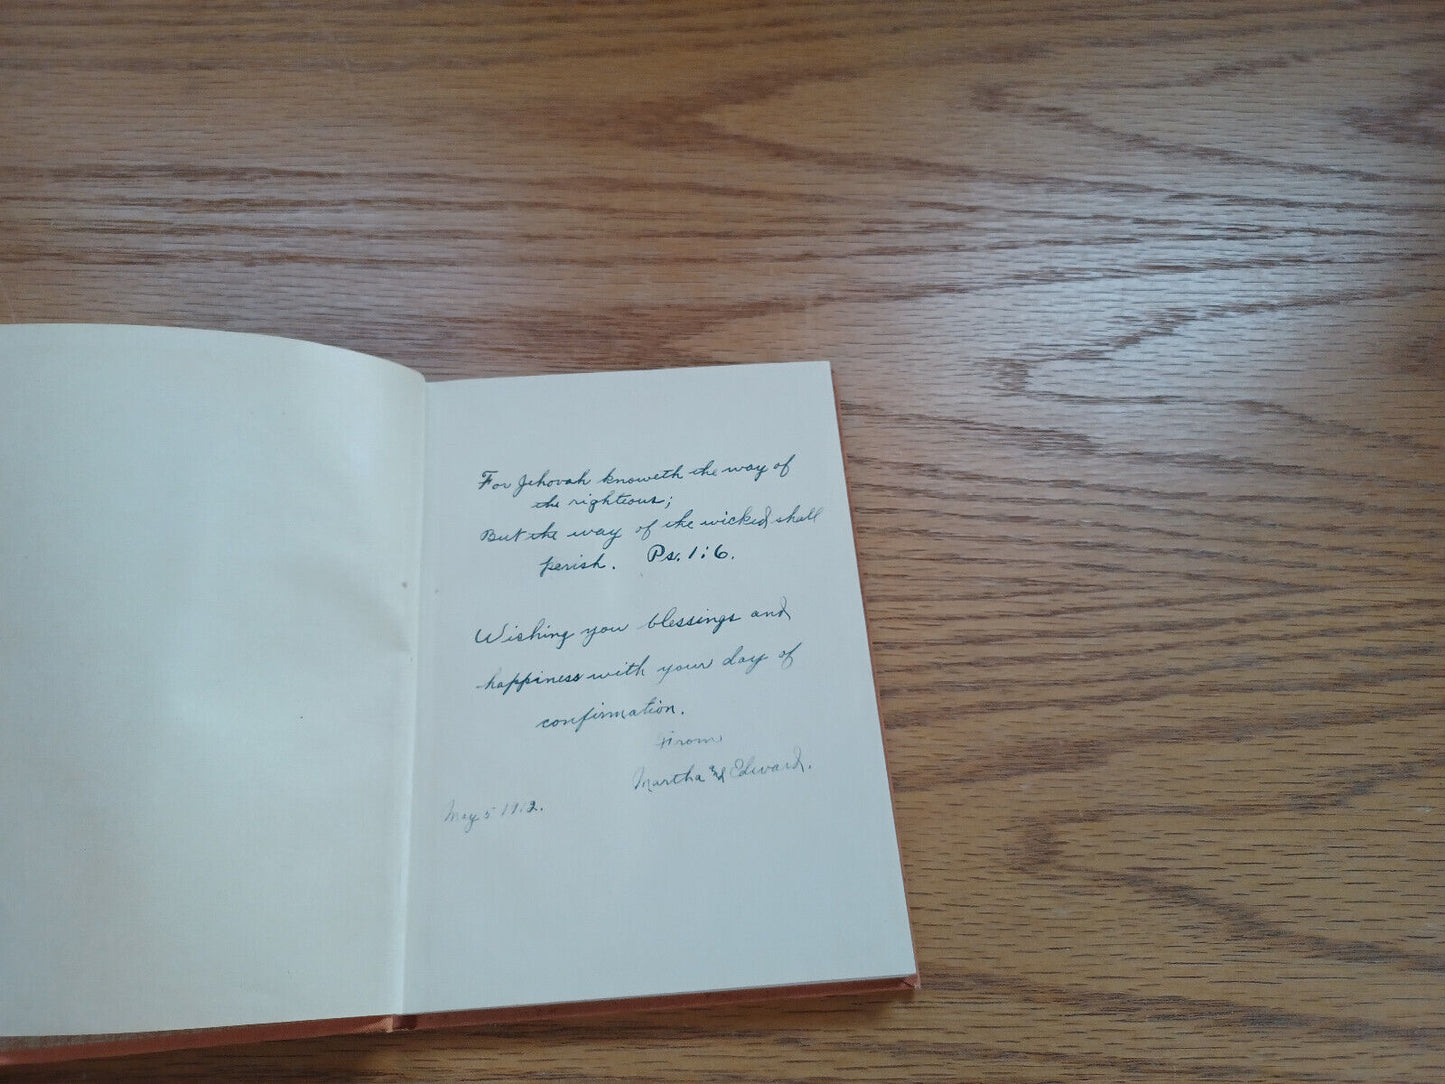 For Jehovah knoweth the way of
the righteous;
But the way of the wicked shall
perish. Ps. 1:6.
Wishing you blessings and
happiness with your day of
confirmation.
From
Martha and Edward.
May 5 1912.